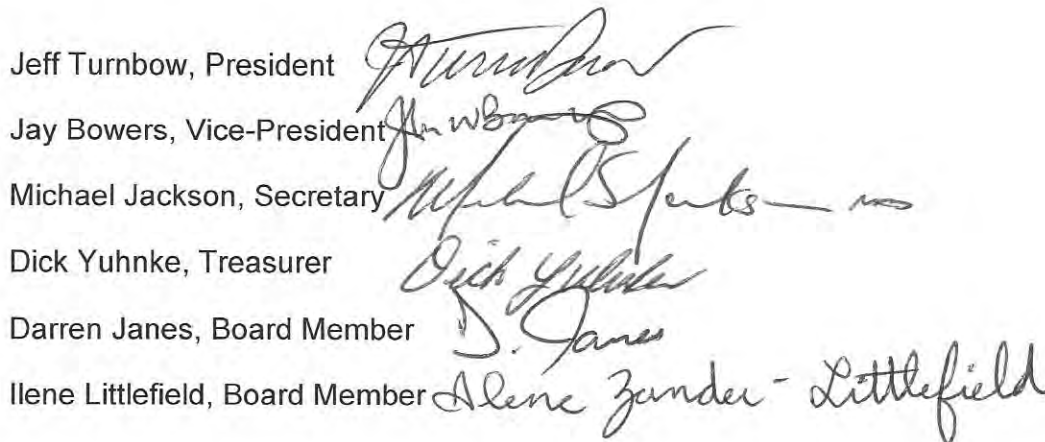 Jeff Turnbow, President
Jay Bowers, Vice-President
Michael Jackson, Secretary
Dick Yuhnke, Treasurer Dick Yuhnke
Darren Janes, Board Member D. Janes
Ilene Littlefield, Board Member Ilene Zander-Littlefield